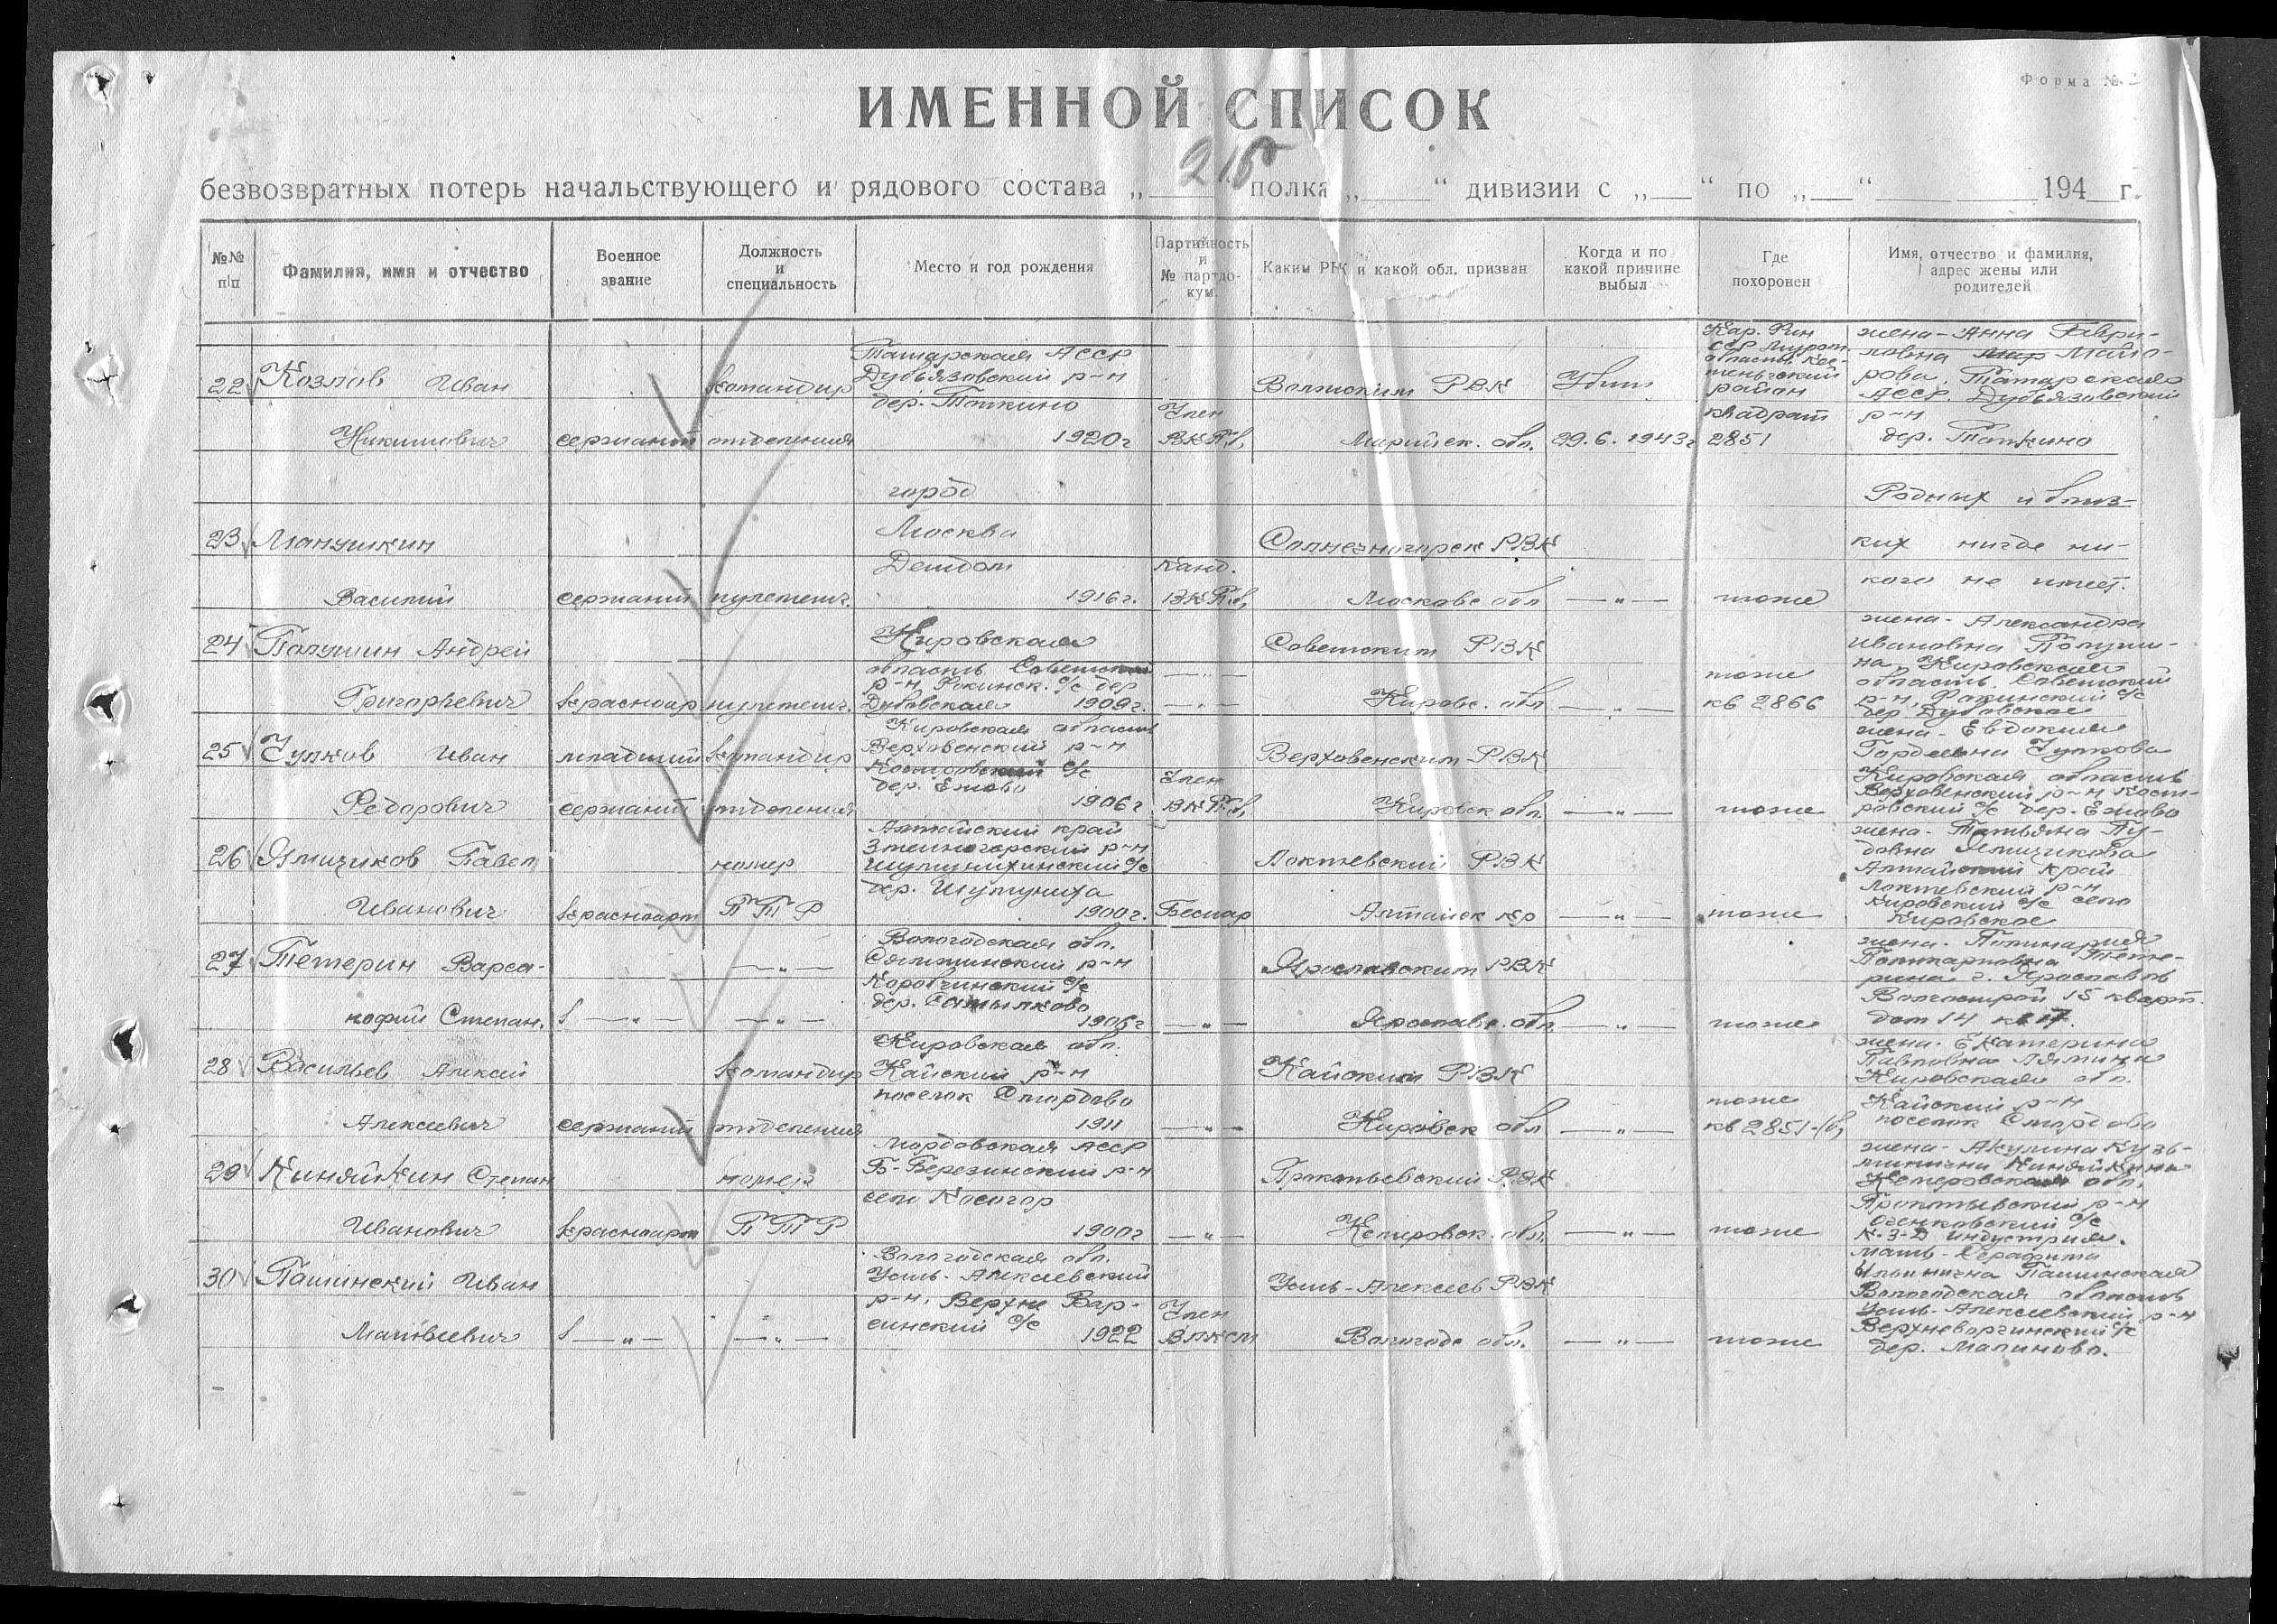 Форма №
ИМЕННОЙ СПИСОК
216
безвозвратных потерь начальствующего и рядового состава „ “ полка „ “ дивизии с „ “ по „ “ 194 г.
№№ п/п
Фамилия, имя и отчество
Военное звание
Должность и специальность
Место и год рождения
Партийность и № партдокум.
Каким РВК и какой обл. призван
Когда и по какой причине выбыл
Где похоронен
Имя, отчество и фамилия, адрес жены или родителей
22 Козлов Иван
Никитович
сержант
командир
отделения
Татарская АССР
Дубъязовский р-н
дер. Топкино
1920г
Член
ВКП(б)
Волжским РВК
Марийск. обл.
Убит
29.6.1943г
Кар. Фин
ССР Мурот.
область Кес-
теньгский
район
квадрат
2851
жена - Анна Гаври-
ловна Майо-
рова. Татарская
АССР. Дубъязовский
р-н
дер. Топкино
23 Манушкин
Василий
сержант
пулеметч.
город
Москва
Детдом
1916г.
Канд.
ВКП(б)
Солнечногорск РВК
Московс обл
— „ —
тоже
Родных и близ-
ких нигде ни-
кого не имеет.
24 Полушин Андрей
Григорьевич
красноар
пулеметч.
Кировская
область Советский
р-н, Фокинск. с/с дер
Дубовская 1909г.
— „ —
— „ —
Советским РВК
Кировс. обл
— „ —
тоже
кв 2866
жена - Александра
Ивановна Полуши-
на, Кировская
область, Советский
р-н, Фокинский с/с
дер Дубовская
25 Чулков Иван
Федорович
младший
сержант
командир
отделения
Кировская область
Верховенский р-н
Костровский с/с
дер. Ежово
1906г
Член
ВКП(б)
Верховенским РВК
Кировск обл.
— „ —
тоже
жена - Евдокия
Гордеевна Чулкова
Кировская область
Верховенский р-н Кост-
ровский с/с дер. Ежово
26 Ямщиков Павел
Иванович
красноарм
номер
ПТР
Алтайский край
Змеиногорский р-н
Шумунихинский с/с
дер. Шумуниха
1900г.
Беспар
Локтевский РВК
Алтайск кр
— „ —
тоже
жена - Татьяна Лу-
довна Ямщикова
Алтайский край
Локтевский р-н
Кировский с/с село
Кировское
27 Тетерин Варса-
нофий Степан.
— „ —
— „ —
— „ —
Вологодская обл.
Сямжинский р-н
Коробчинский с/с
дер.
1906г
— „ —
Ярославским РВК
Ярославс. обл
— „ —
тоже
жена - Полинария
Поликарповна Тете-
рина г. Ярославль
Волгострой 15 кварт.
дом 14 кв 17.
28 Васильев Алексей
Алексеевич
сержант
командир
отделения
Кировская обл.
Кайский р-н
поселок Смордово
1911
— „ —
Кайским РВК
Кировск обл
— „ —
тоже
кв 2851-(б)
жена - Екатерина
Павловна Лямина
Кировская обл.
Кайский р-н
поселок Смордово
29 Киняйкин Степан
Иванович
красноарм
номер
ПТР
Мордовская АССР
Б-Березинский р-н
село Косогор
1900г
— „ —
Прокопьевский РВК
Кемировск. обл.
— „ —
тоже
жена - Акулина Кузь-
минична Киняйкина
Кемеровская обл.
Прокопьевский р-н
с/с
К-З-Д Индустрия.
30 Пашинский Иван
Матвеевич
— „ —
— „ —
Вологодская обл.
Усть-Алексеевский
р-н, Верхне Вар-
синский с/с 1922
Член
ВЛКСМ
Усть-Алексеев РВК
Вологодс обл.
— „ —
тоже
мать - Серафима
Ильинична Пашинская
Вологодская область
Усть-Алексеевский р-н
Верхневаргинский с/с
дер. Малиново.